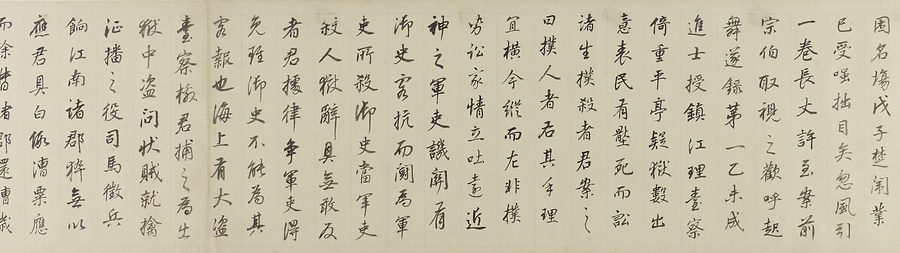 困名場戊子楚闈業
已受嗤拙目矣忽風引
一卷長丈許至案前
宗伯取視之歡呼起
舞遂錄第一乙未成
進士授鎮江理臺察
倚重平亭疑獄數出
意表民有毆死而訟
諸生撲殺者君案之
曰撲人者右其手理
宜橫今縱而左非撲
也訟家情立吐遠近
神之軍吏譏關有
御史客抗而闌為軍
吏所殺御史當軍吏
殺人獄辭具無敢反
者君據律爭軍吏得
免雖御史不能為其
客報也海上有大盜
臺察檄君捕之為出
獄中盜問狀賊就擒
征播之役司馬徵兵
餉江南諸郡猝無以
應君具白係漕粟應
而余督者郡還漕歲